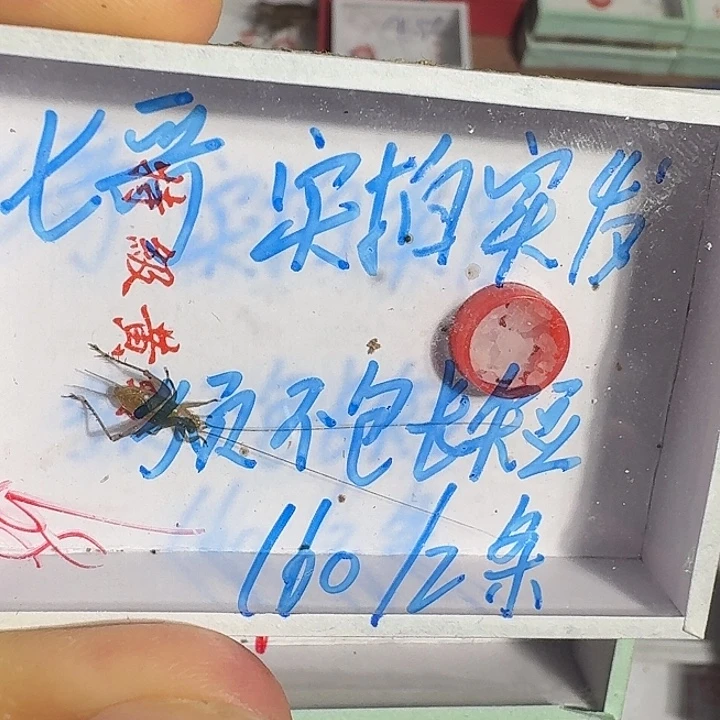 七哥 实拍实发
须不包长短
160/2条
特级黄